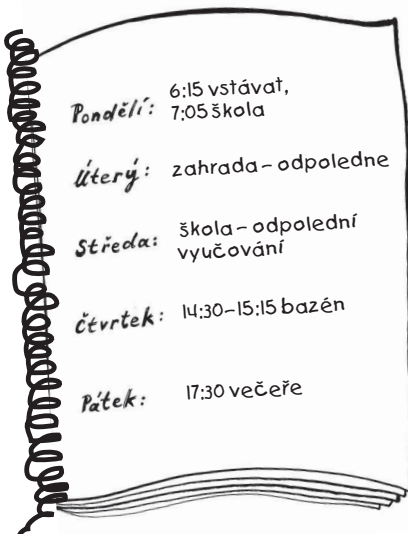 Pondělí: 6:15 vstávat,
7:05 škola
Úterý: zahrada – odpoledne
Středa: škola – odpolední
vyučování
Čtvrtek: 14:30–15:15 bazén
Pátek: 17:30 večeře